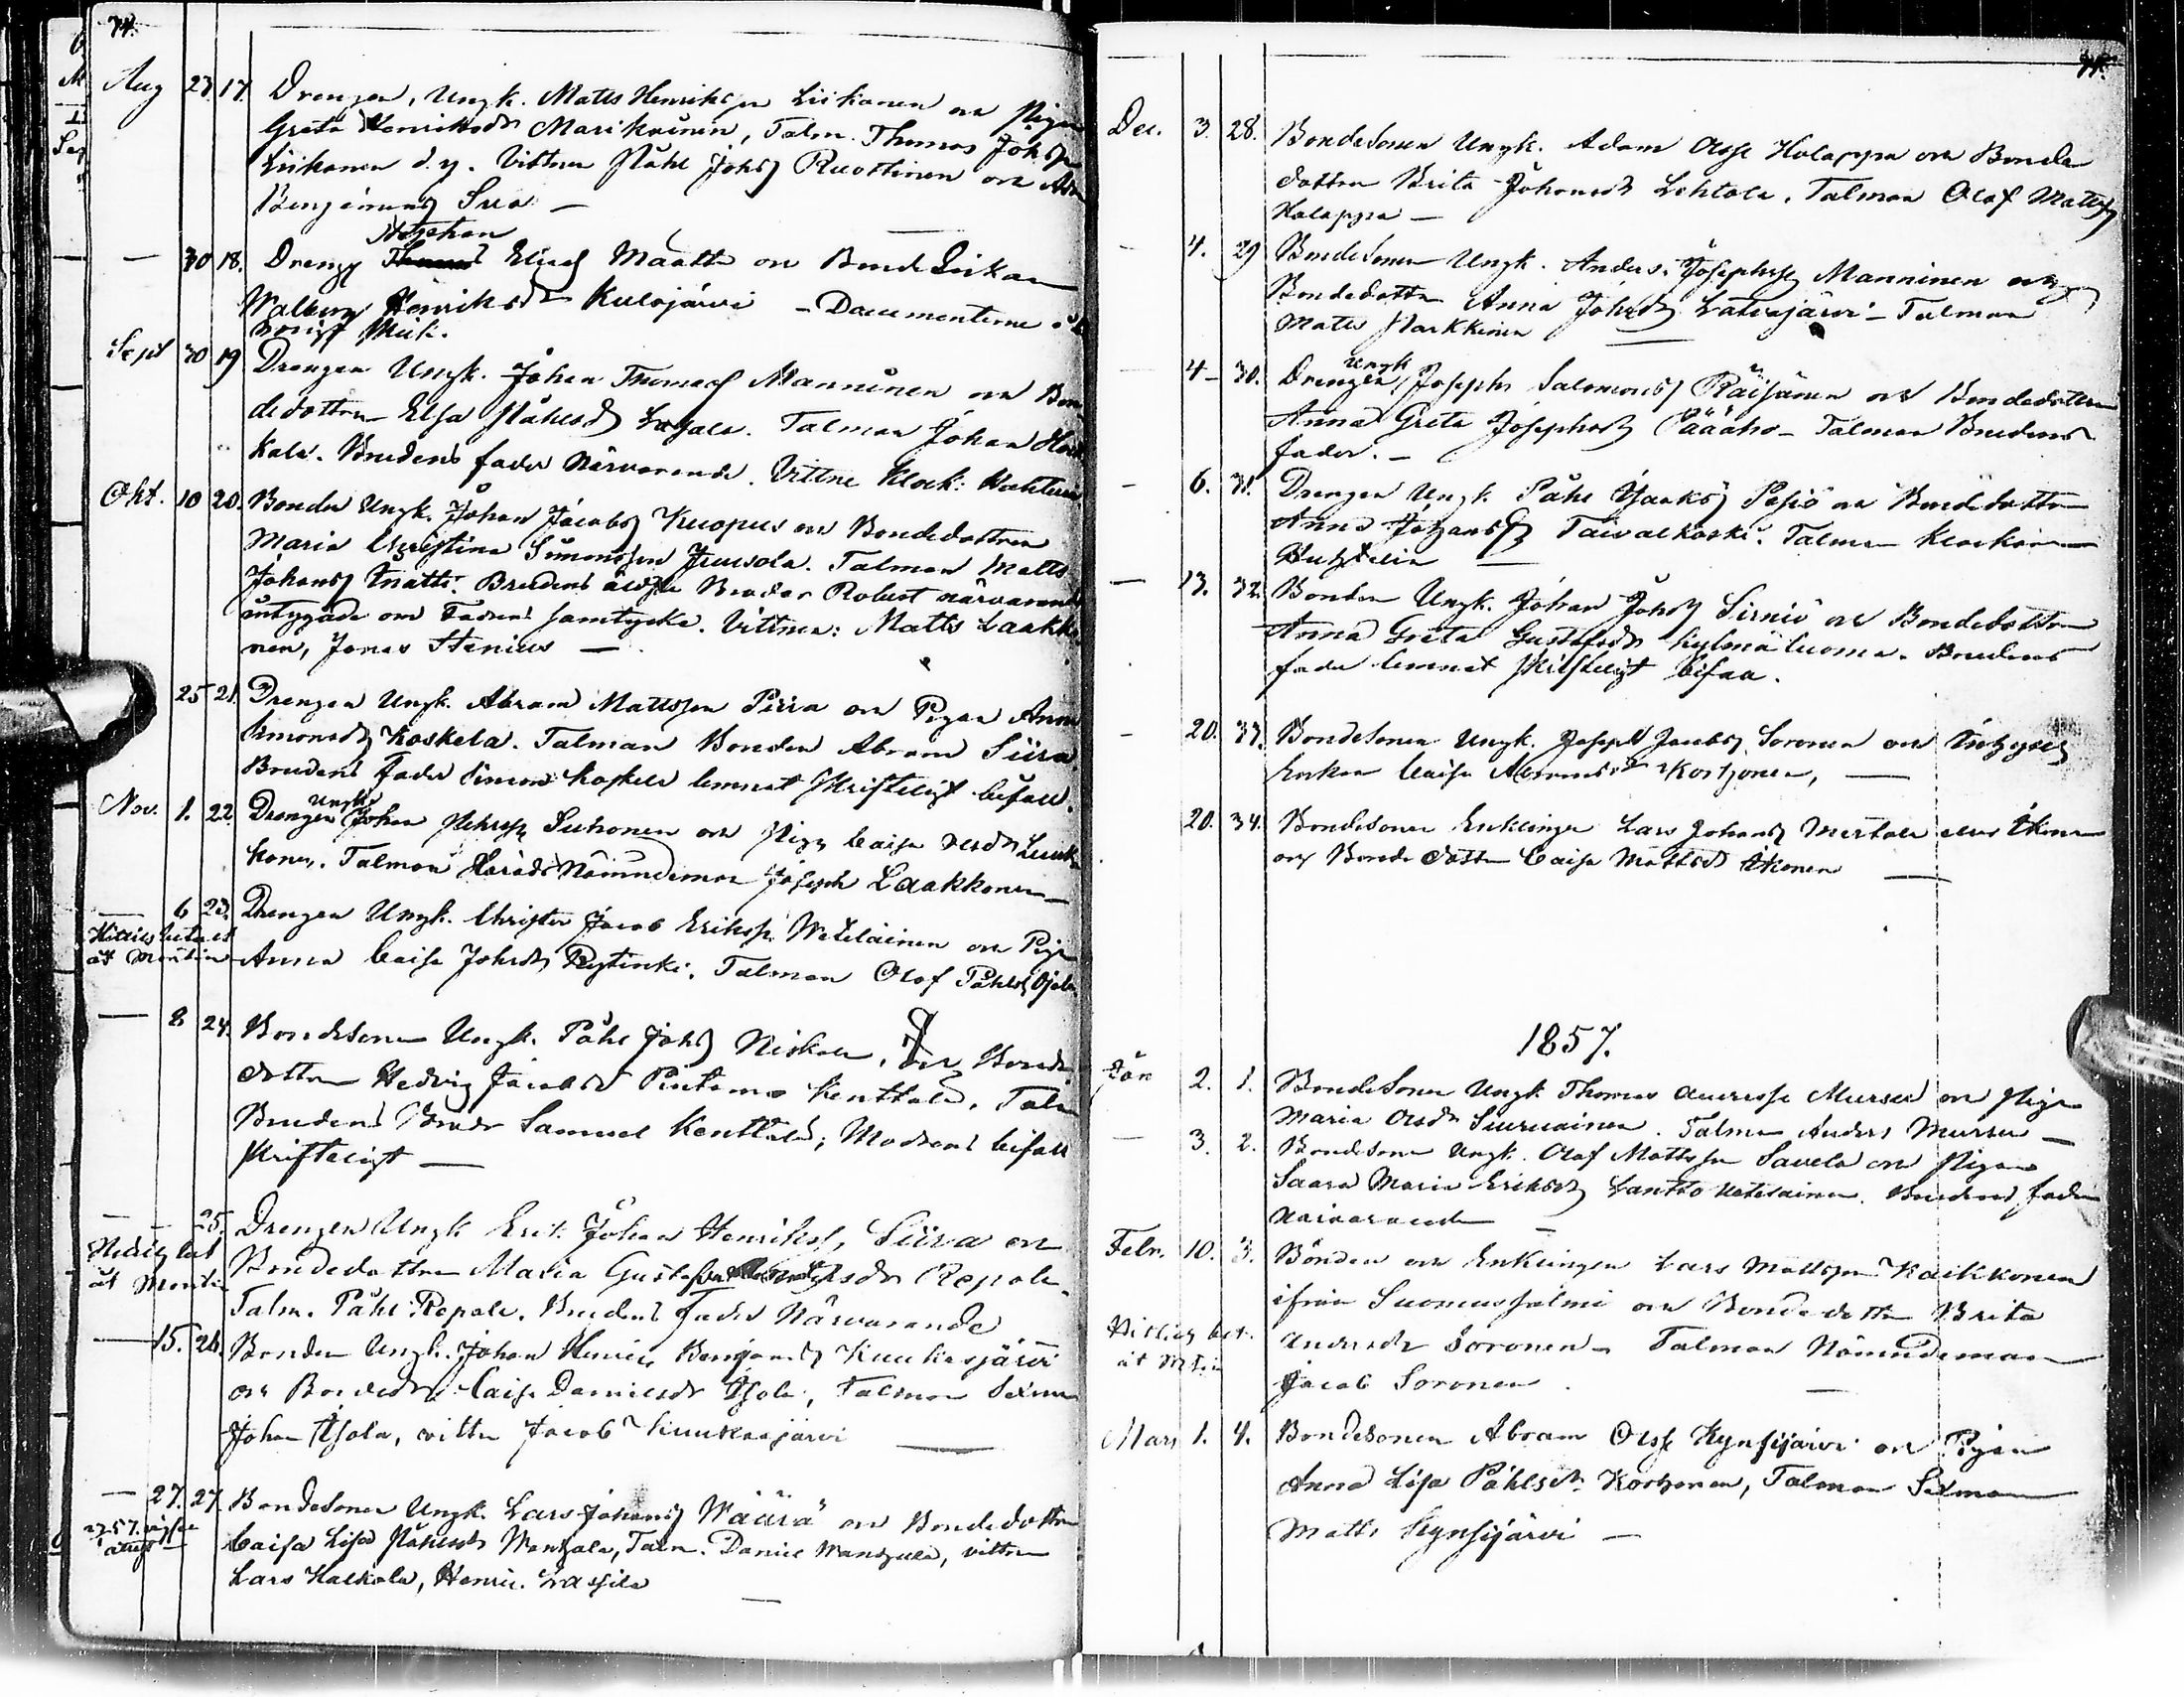 74.
Aug 23. 17. Drengen, Ungk. Matts Henriksson Liikanen och Pigan
Greta Henriksdr Marikainen, Talm. Thomas Johss
Liikanen d.y. Vittnen Påhl Johss Ruottinen och
Benjaminss Sua —
Stephan
— 30 18. Dreng Eliess Määttä och Bonde Enkan
Walborg Henriksdr Kulojärvi — Documenterne
Sept 30 19 Drengen Ungk. Johan Thomass Manninen och Bon
dedottren Elsa Påhlsdr Talman Johan
kala. Brudens fader Närvarande. Vittne Klock:
Okt. 10 20. Bonden Ungk. Johan Jacobss Kuopus och Bondedottren
Maria Christina Simonsson Juusola. Talman Matts
Johanss Määttä. Brudens äldre Broder Robert närvarande
intygade om Fadrens samtycke. Vittnen: Matts Laakko
nen, Jonas Stenius —
25 21. Drengen Ungk. Abram Mattsson Piira och Pigan Anna
Simonsdr Koskela. Talman Bonden Abram Siira
Brudens Fader Simon Koskela lemnat skriftligt bifall.
Ungk.
Nov. 1. 22. Drengen Johan Pehrss Suhonen och Pig. Caisa Olsdr Luuk
konen. Talman Härads Nämndeman Joseph Laakkonen
— 6 23. Drengen Ungk. Christer Jacob Erikss. Weteläinen och Piga
Anna Caisa Johsdr Rytinki. Talman Olof Påhlss
— 8 24. Bondesonen Ungk. Påhl Johss Niskala, och Bonde
dottren Hedvig Jacobsdr Pintamo Kenttälä. Talm
Brudens Broder Samuel Kenttälä; Modrens bifall
skriftligt —
— 25. Drengen Ungk Erik Johan Henrikss. Siira och
Bondedottren Maria Repola.
Talm. Påhl Repola. Brudens Fader Närvarande
— 15. 26. Bonden Ungk. Johan Henric Benjamss Kuukasjärvi
och Bondedr. Caisa Danielsdr Isola, Talman Sexman
Johan Isola, vittne Jacob Kuukasjärvi —
— 27. 27. Bondesonen Ungk. Lars Johanss Määrä och Bondedottren
Caisa Lisa Påhlsdr Talm. Daniel vittnen
Lars Kalkola, Henric Lassila —
Dec. 3. 28. Bondesonen Ungk. Adam Olss Holappa och Bonde
dottren Brita Johansdr Lehtola. Talman Olof Mattss
Holappa —
— 4. 29 Bondesonen Ungk. Anders Josephss Manninen och
Bondedottren Anna Johsdr Latvajärvi — Talman
Matts Parkkinen —
Ungk
4 — 30. Drengen Joseph Salomonss Räisänen och Bondedottren
Anna Greta Josephsdr Pääaho — Talman Brudens
fader. —
— 6. 31. Drengen Ungk. Påhl Posio och Bondedottren
Anna Johansdr Taivalkoski. Talman Klockaren
— 13. 32. Bonden Ungk. Johan Johss Sirniö och Bondedottren
Anna Greta Gustafsdr Kylmäluoma. Brudens
fader lemnat skriftligt bifall.
— 20. 33. Bondesonen Ungk. Joseph Jacobss Soronen och
Enkan Caisa Abramsdr Korhonen, —
20. 34. Bondesonen Enklingen Lars Johanss Mertala eller Ikonen
och Bonde dottren Caisa Mattsdr Ikonen —
1857.
Jan 2. 1. Bondesonen Ungk Thomas Anderss Mursu och Pigan
Maria Olsdr Siuruainen. Talman Anders Mursu —
— 3. 2. Bondesonen Ungk. Olof Mattsson Savela och Pigan
Saara Maria Eriksdr Lantto Brudens fader
närvarande —
Febr. 10. 3. Bonden och Enklingen Lars Mattsson Kaikkonen
ifrån Suomussalmi och Bonde dottren Brita
Andersdr Soronen — Talman Nämndeman
Jacob Soronen. —
Mars 1. 4. Bondesonen Abram Olss Kynsijärvi och Pigan
Anna Lisa Påhlsdr Korhonen, Talman Sexman
Matts Kynsijärvi —